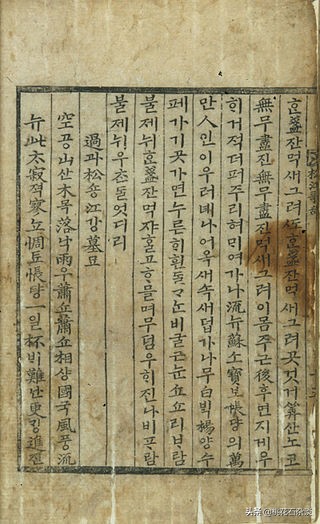 ᄒᆞᆫ盞잔먹새그려ᄯᅩᄒᆞᆫ盞잔먹새그려곳것거算산노코
無무盡진無무盡진먹새그려이몸주근後후면지게우
ᄒᆡ거적더퍼주리혀ᄆᆡ여가나流뉴蘇소寶보帳댱의萬
만人인이우러녜나어욱새속새덥가나무白ᄇᆡᆨ楊양수
페가기곳가면누른ᄒᆡ흰ᄃᆞᆯᄀᆞᄂᆞᆫ비굴근눈쇼쇼리ᄇᆞ람
불제뉘ᄒᆞᆫ盞잔먹쟈ᄒᆞᆯ고ᄒᆞ믈며무덤우ᄒᆡ진나비ᄑᆞ람
불제뉘우ᄎᆞᆫᄃᆞᆯ엇더리
過과松숑江강墓묘
空공山산木목落낙雨우蕭쇼蕭쇼相샹國국風풍流
뉴此ᄎᆞ寂젹寥뇨惆튜悵턍一일杯ᄇᆡ難난更ᄀᆡᆼ進진
头条 @桃花石杂谈